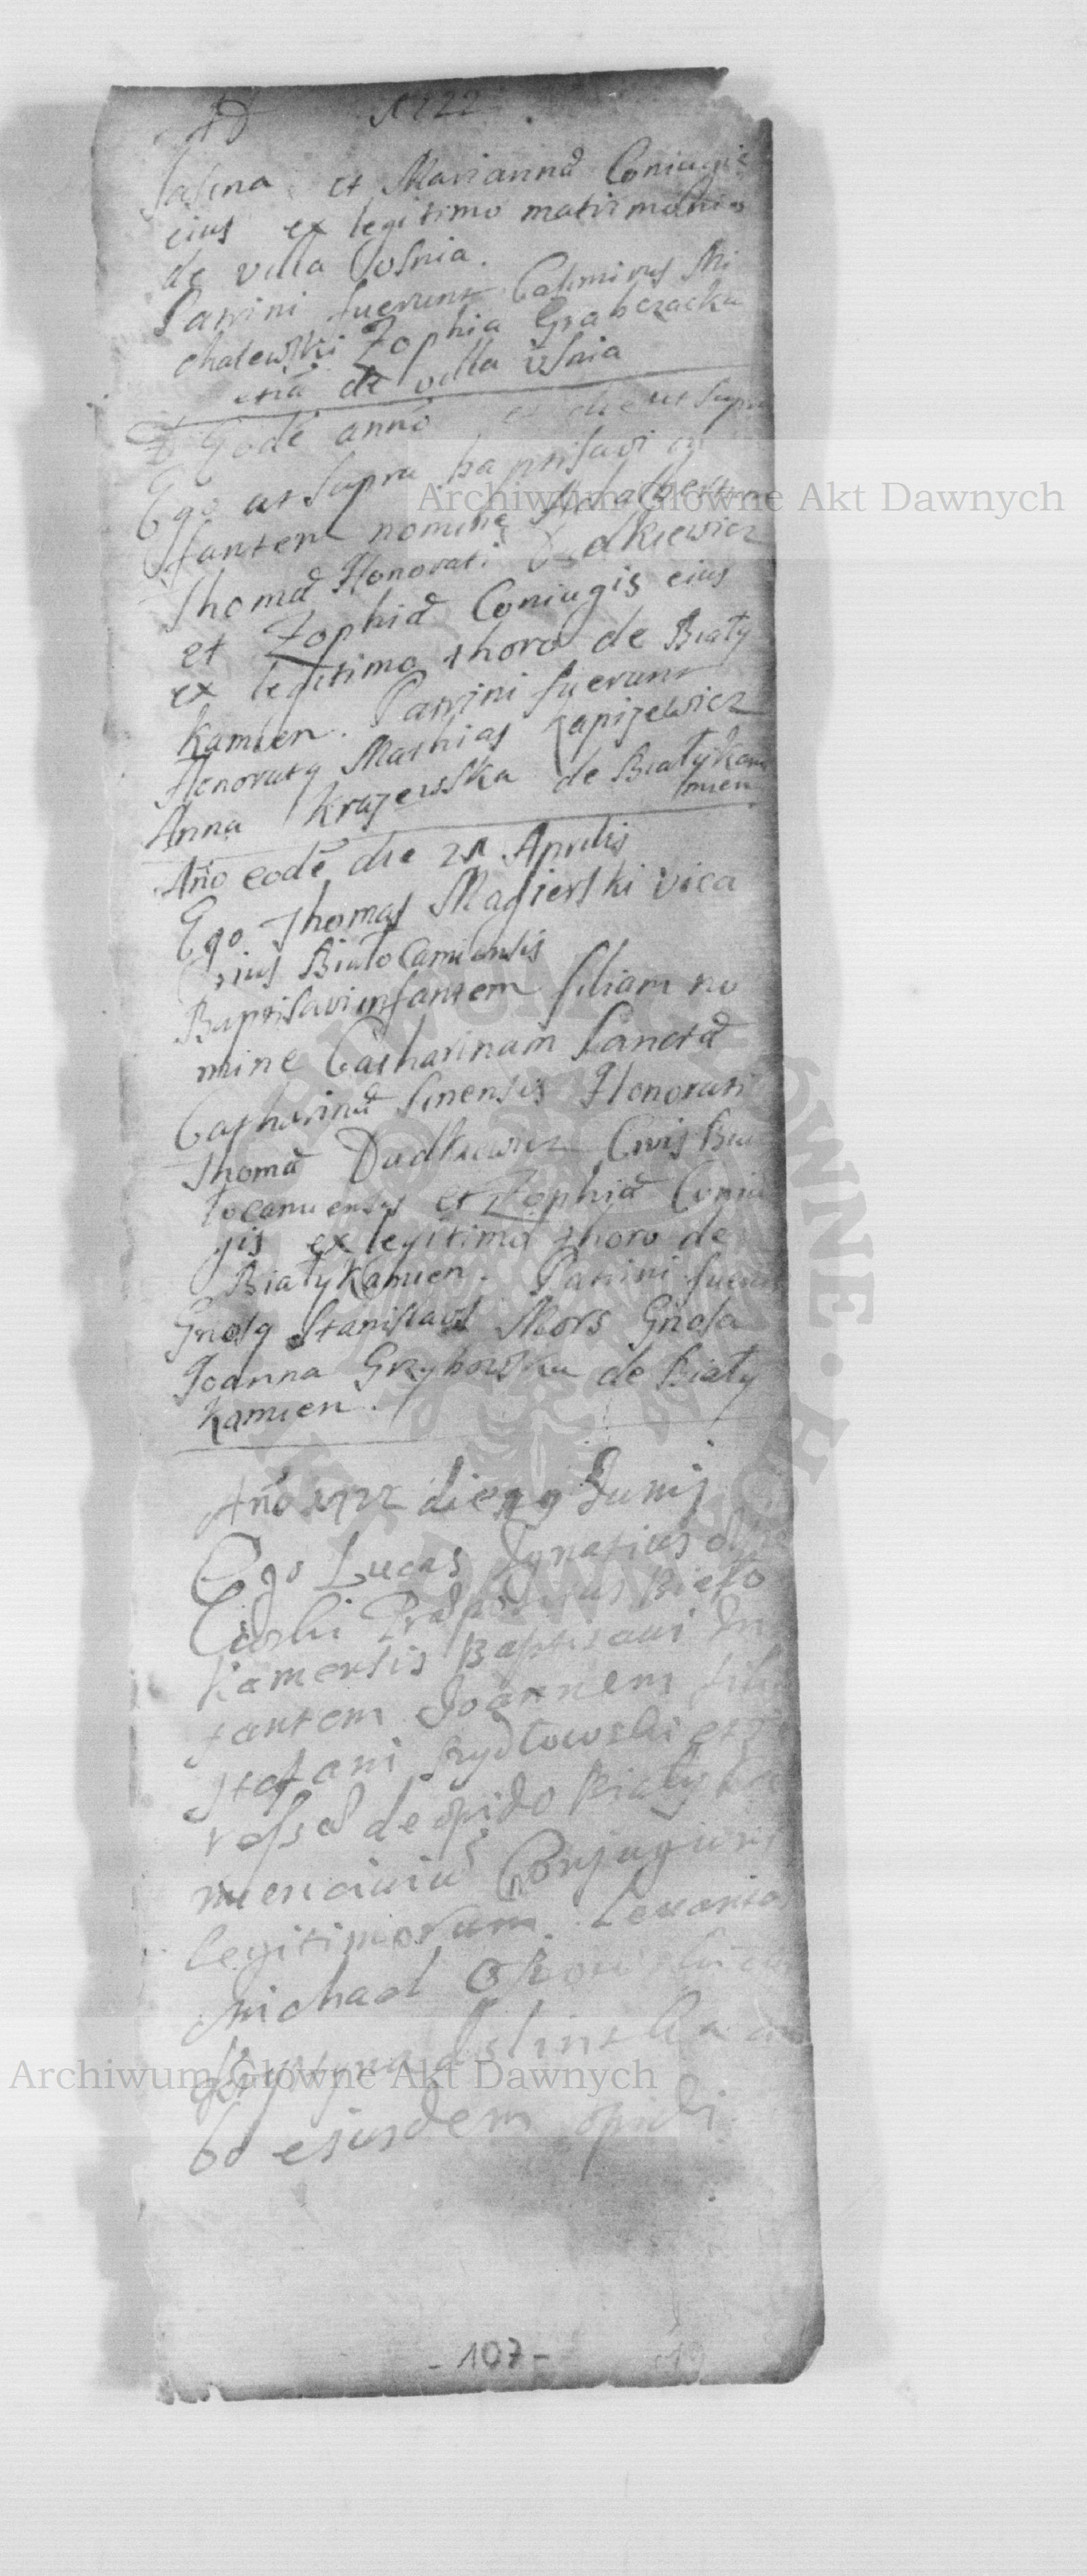 AD 1722
Jasina et Marianna Coniugis
eius ex legitimo matrimonio
de villa Usznia.
Patrini fuerunt Casimirus Mi
chalewski Zophia Grabczacka
de villa Usnia
Eode anno et die ut supra
Ego ut supra baptisavi in
fantem nomine Adalbertum
Thoma Honorati Dudkiewicz
et Zophia Coniugis eius
ex legitimo thoro de Biały
kamien. Patrini fuerunt
Honoratq Mathias Łapizewicz
Anna Krajewska de Białykam
mien
Ano eode die 21 Aprilis
Ego Thomas Magierski vica
rius Białocamiensis
Baptisavi infantem filiam no
mine Catharinam Sancta
Catharina Sinensis Honorati
Thoma Dudkiewicz Civis Bia
locamiensis et Zophia Coniu
gis ex legitimo thoro de
BiałyKamien. Patrini fuerunt
Gnosq Stanislaus Mors Gnosa
Joanna Grzybowska de Biały
Kamien.
Ano 1722 die Junij
Ego Lucas Ignatius
Praepositus Biało
Kamensis Baptisavi In
fantem Joannem filiu
Stefani Szydłowski et
de opido Białyka
mien Conjugum
legitimorum. Levantes
Michael
bo ejusdem opidi
- 107 -
19
Archiwum Główne Akt Dawnych
Archiwum Główne Akt Dawnych